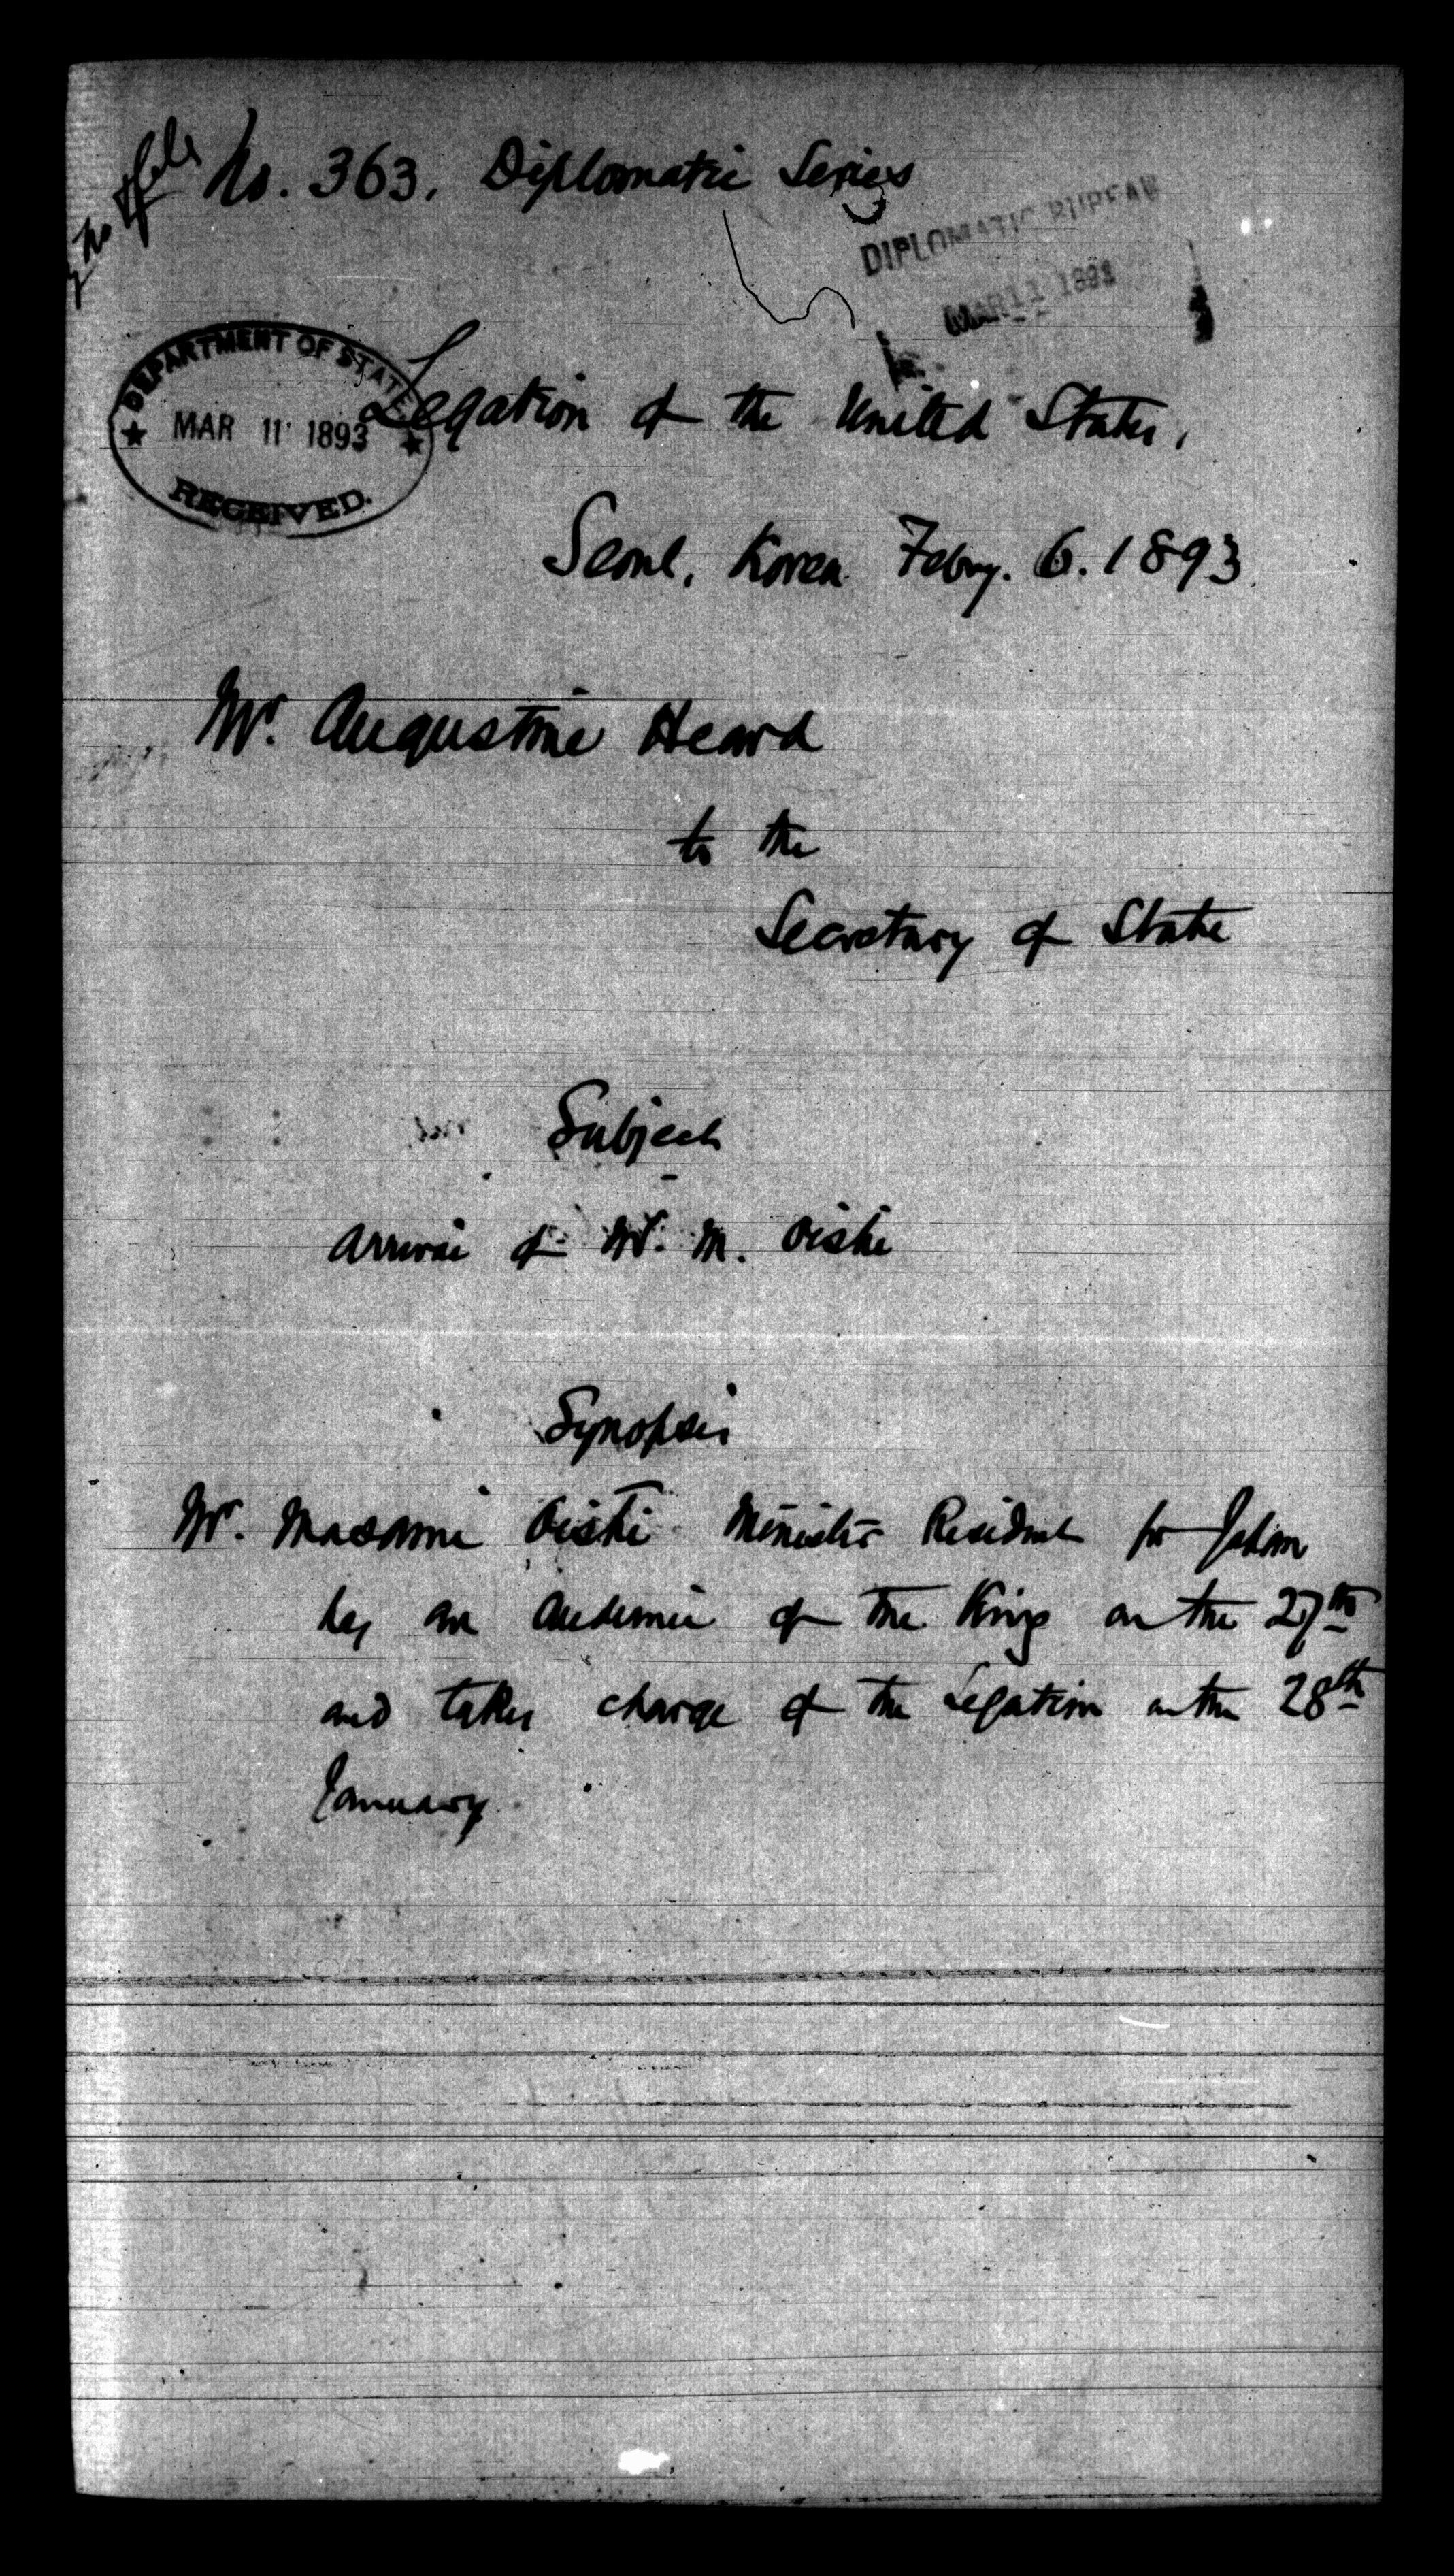 No. 363. Diplomatic Series
DIPLOMATIC BUREAU
MAR 11 1893
DEPARTMENT OF STATE
MAR 11 1893
RECEIVED.
Legation of the United States,
Seoul, Korea Febry. 6. 1893
Mr. Augustine Heard
to the
Secretary of State
Subject
Arrival of Mr. M. Oishi
Synopsis
Mr. Masami Oishi Minister Resident for Japan
has an Audience of the King on the 27th
and takes charge of the Legation on the 28th
January